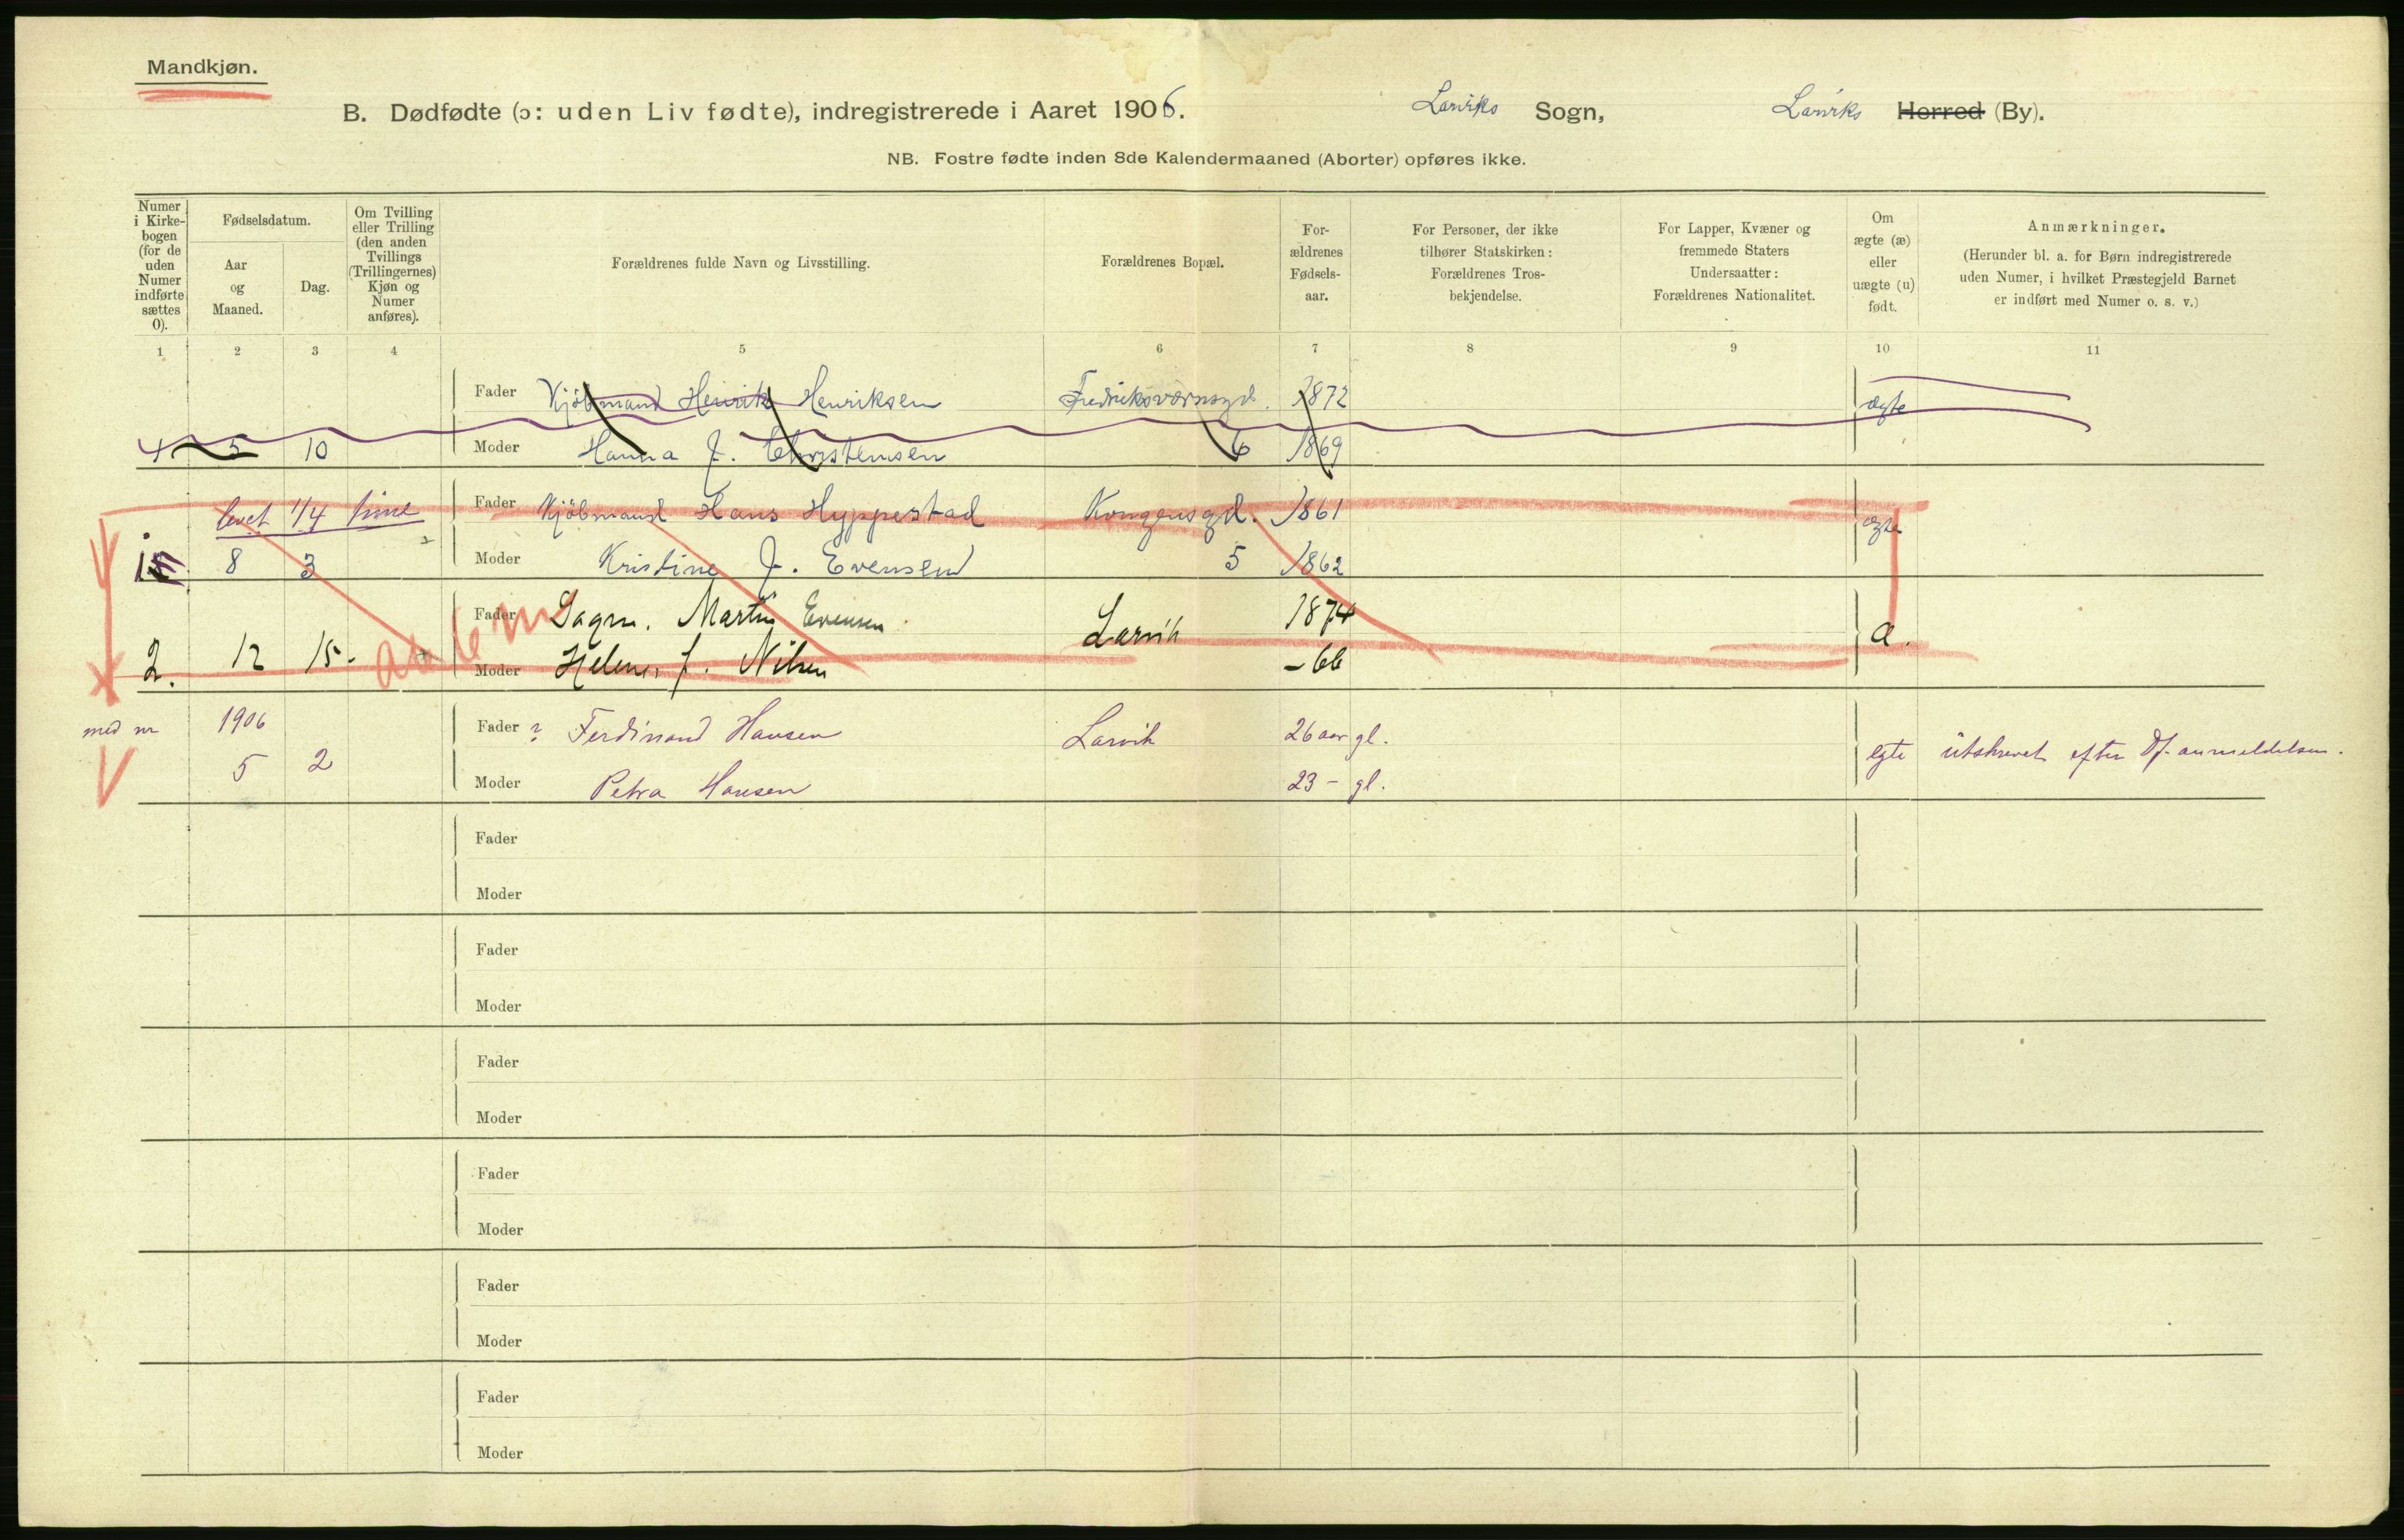 Mandkjøn.
B. Dødfødte (ɔ: uden Liv fødte), indregistrerede i Aaret 1906. Larviks Sogn, Larviks Herred (By).
NB. Fostre fødte inden 8de Kalendermaaned (Aborter) opføres ikke.
Numer i Kirkebogen (for de uden Numer indførte sættes 0).
Fødselsdatum.
Aar og Maaned.
Dag.
Om Tvilling eller Trilling (den anden Tvillings (Trillingernes) Kjøn og Numer anføres).
Forældrenes fulde Navn og Livsstilling.
Forældrenes Bopæl.
For-
ældrenes
Fødsels-
aar.
For Personer, der ikke
tilhører Statskirken:
Forældrenes Tros-
bekjendelse.
For Lapper, Kvæner og
fremmede Staters
Undersaatter:
Forældrenes Nationalitet.
Om
ægte (æ)
eller
uægte (u)
født.
Anmærkninger.
(Herunder bl. a. for Børn indregistrerede
uden Numer, i hvilket Præstegjeld Barnet
er indført med Numer o. s. v.)
1 2 3 4 5 6 7 8 9 10 11
Fader Kjöbmand Henrik Henriksen Fredriksværnsgd. 1872 ægte
5 10 Moder Hanna J. Christensen 6 1869
levet 1/4 time Fader Kjöbmand Hans Hyppestad Kongensgd. 1861 egte
8 3 Moder Kristine J. Evensen 5 1862
Fader Martin Evensen Larvik 1874
2. 12 15- Moder Helene f. Nilsen - 66
med nr 1906 Fader ? Ferdinand Hansen Larvik 26 aar gl. egte utskrevet efter Df. anmeldelsen.
5 2 Moder Petra Hansen 23 - gl.
Fader
Moder
Fader
Moder
Fader
Moder
Fader
Moder
Fader
Moder
Fader
Moder